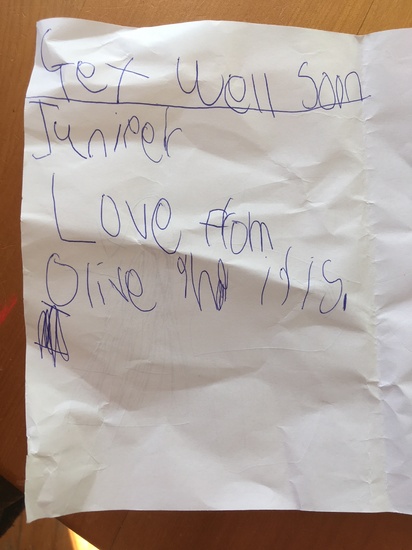 Get well Soon
Juniper
Love from
Olive iris.